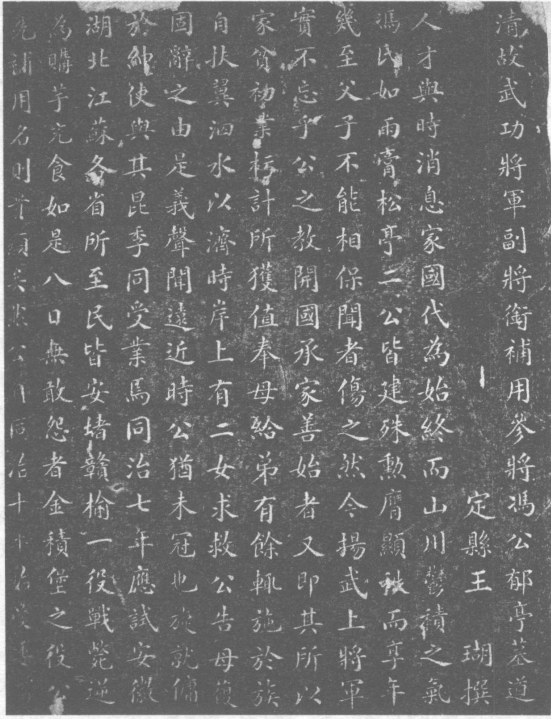 清故武功將軍副將銜補用參將馮公郁亭墓道
定縣王 瑚撰
人才與時消息家國代為始終而山川鬱積之氣
馮氏如雨膏松亭二公皆建殊勳膺顯秩而享年
幾至父子不能相保聞者傷之然今揚武上將軍
實不忘乎公之教開國承家善始者又即其所以
家貧初業標計所獲值奉母給弟有餘輒施於族
自扶異泗水以濟時岸上有二女求救公告母復
固辭之由是義聲聞遠近時公猶未冠也旋就傭
於紳使與其昆季同受業焉同治七年應試安徽
湖北江蘇各省所至民皆安堵贛榆一役戰斃逆
為購芋充食如是八日無敢怨者金積堡之役公
補用名則 公 同治十